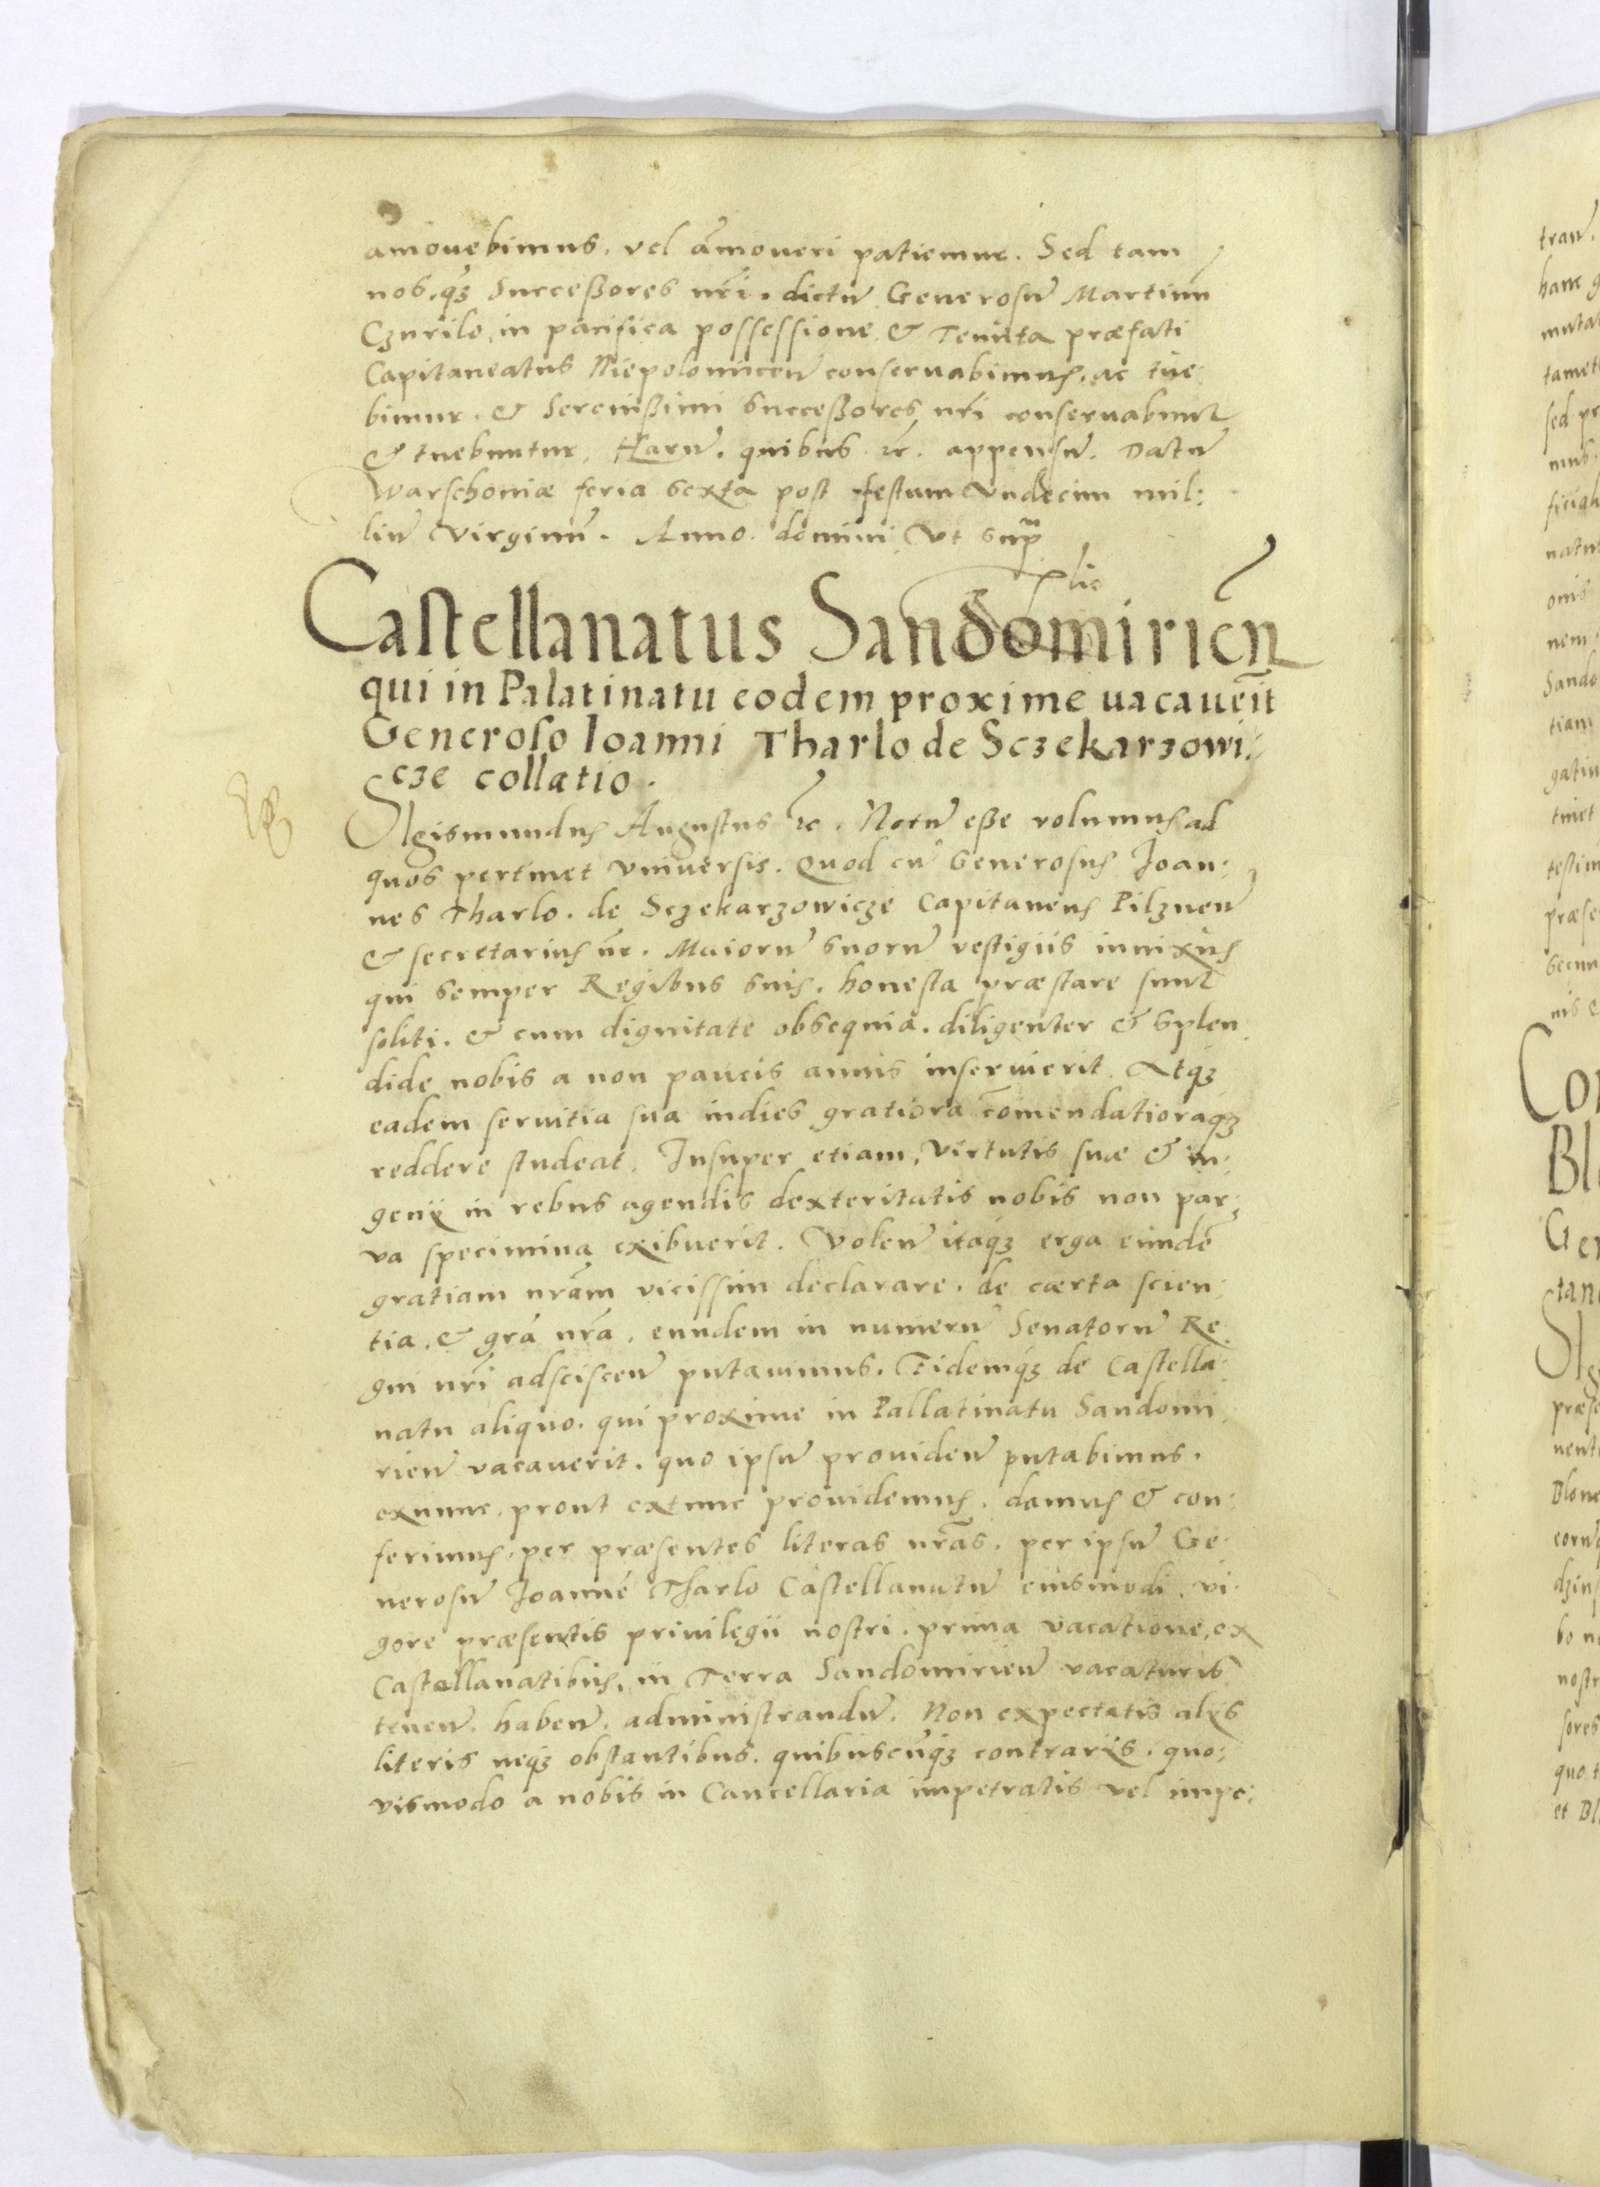 amouebimus. vel am̃oueri patiemur. Sed tam
nos. q̃ꝫ Succeßores nr̃i. dictũ Generosũ Martinũ
Czurilo, in pacifica possessione & Tenuta præfati
Capitaneatus Niepolomiceñ conseruabimus, ac tue
bimur. & Serenißimi Succeßores nr̃i conseruabunt
& tuebuntur, Harũ. quibus &c̃. appensũ. Datũ
Warschouiæ feria sexta post festum Vndecim mil:
liũ Virginũ. Anno domini Vt sup̃
Castellanatus Sandomirień
qui in Palatinatu eodem proxime uacauer̃it
Generoso Ioanni Tharlo de Sczekarzowi:
cze collatio.
SIgismundus Augustus &c̃. Notũ eße volumus ad
quos pertinet Vniuersis. Quod cũ Generosus Joan:
nes Tharlo. de Sczekarzowicze Capitaneus Pilzneñ
& secretarius nr̃. Maiorũ suorũ vestigiis innixus
qui semper Regibus suis. honesta præstare sunt
soliti. & cum dignitate obsequia. diligenter & splen
dide nobis a non paucis annis inseruierit. Atqꝫ
eadem seruitia sua indies gratiora com̃endatioraqꝫ
reddere studeat. Insuper etiam, Virtutis suæ & in:
genij in rebus agendis dexteritatis nobis non par:
va specimina exibuerit. Voleñ itaqꝫ erga eundẽ
gratiam nr̃am vicissim declarare. de cærta scien:
tia. & gr̃a nr̃a. eundem in numerũ Senatorũ Re
gni nr̃i adsciscen̄ putauimus. Eidemqꝫ de Castella:
natu aliquo. qui proxime in Pallatinatu Sandomi
rieñ vacauerit. quo ipsũ prouideñ putabimus.
exnunc. prout extunc prouidemus. damus & con:
ferimus. per præsentes literas nr̃as. per ipsũ Ge:
nerosũ Joannẽ Tharlo Castellanatũ eiusmodi. vi
gore præsentis priuilegii nostri. prima vacatione, ex
Castellanatibus, in Terra Sandomirieñ vacaturis
teneñ. habeñ. administrandũ. Non expectatis alijs
literis neqꝫ obstantibus. quibuscũqꝫ contrarijs. quo:
vismodo a nobis in Cancellaria impetratis vel impe: